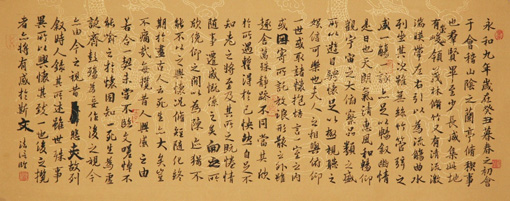 永和九年歲在癸丑暮春之初會
于會稽山陰之蘭亭脩稧事
也羣賢畢至少長咸集此地
有峻領茂林脩竹又有清流激
湍暎帶左右引以為流觴曲水
列坐其次雖無絲竹管弦之
盛一觴一詠亦足以暢叙幽情
是日也天朗氣清惠風和暢仰
觀宇宙之大俯察品類之盛
所以遊目騁懷足以極視聽之
娛信可樂也夫人之相與俯仰
一世或取諸懷抱悟言一室之內
或因寄所託放浪形骸之外雖
趣舍萬殊靜躁不同當其欣
於所遇暫得於己怏然自足不
知老之將至及其所之既惓情
隨事遷感慨係之矣向之所
欣俛仰之間以為陳迹猶不
能不以之興懷況脩短隨化終
期於盡古人云死生亦大矣豈
不痛哉每攬昔人興感之由
若合一契未嘗不臨文嗟悼不
能喻之於懷固知一死生為虛
誕齊彭殤為妄作後之視今
亦由今之視昔悲夫故列
叙時人錄其所述雖世殊事
異所以興懷其致一也後之攬
者亦將有感於斯文